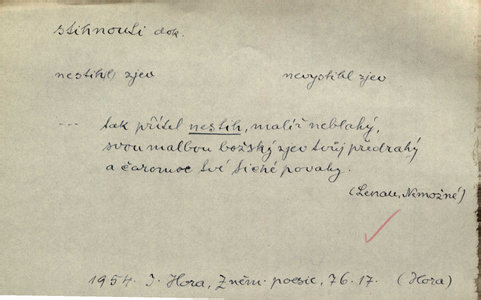 stihnouti dok.
nestihl zjev nevystihl zjev
--- tak přítel nestih, malíř neblahý,
svou malbou božský zjev tvůj předrahý
a čaromoc tvé tiché povahy.
(Lenau, Nemožné)
1954. J. Hora, Zněm. poesie, 76.17. (Hora)